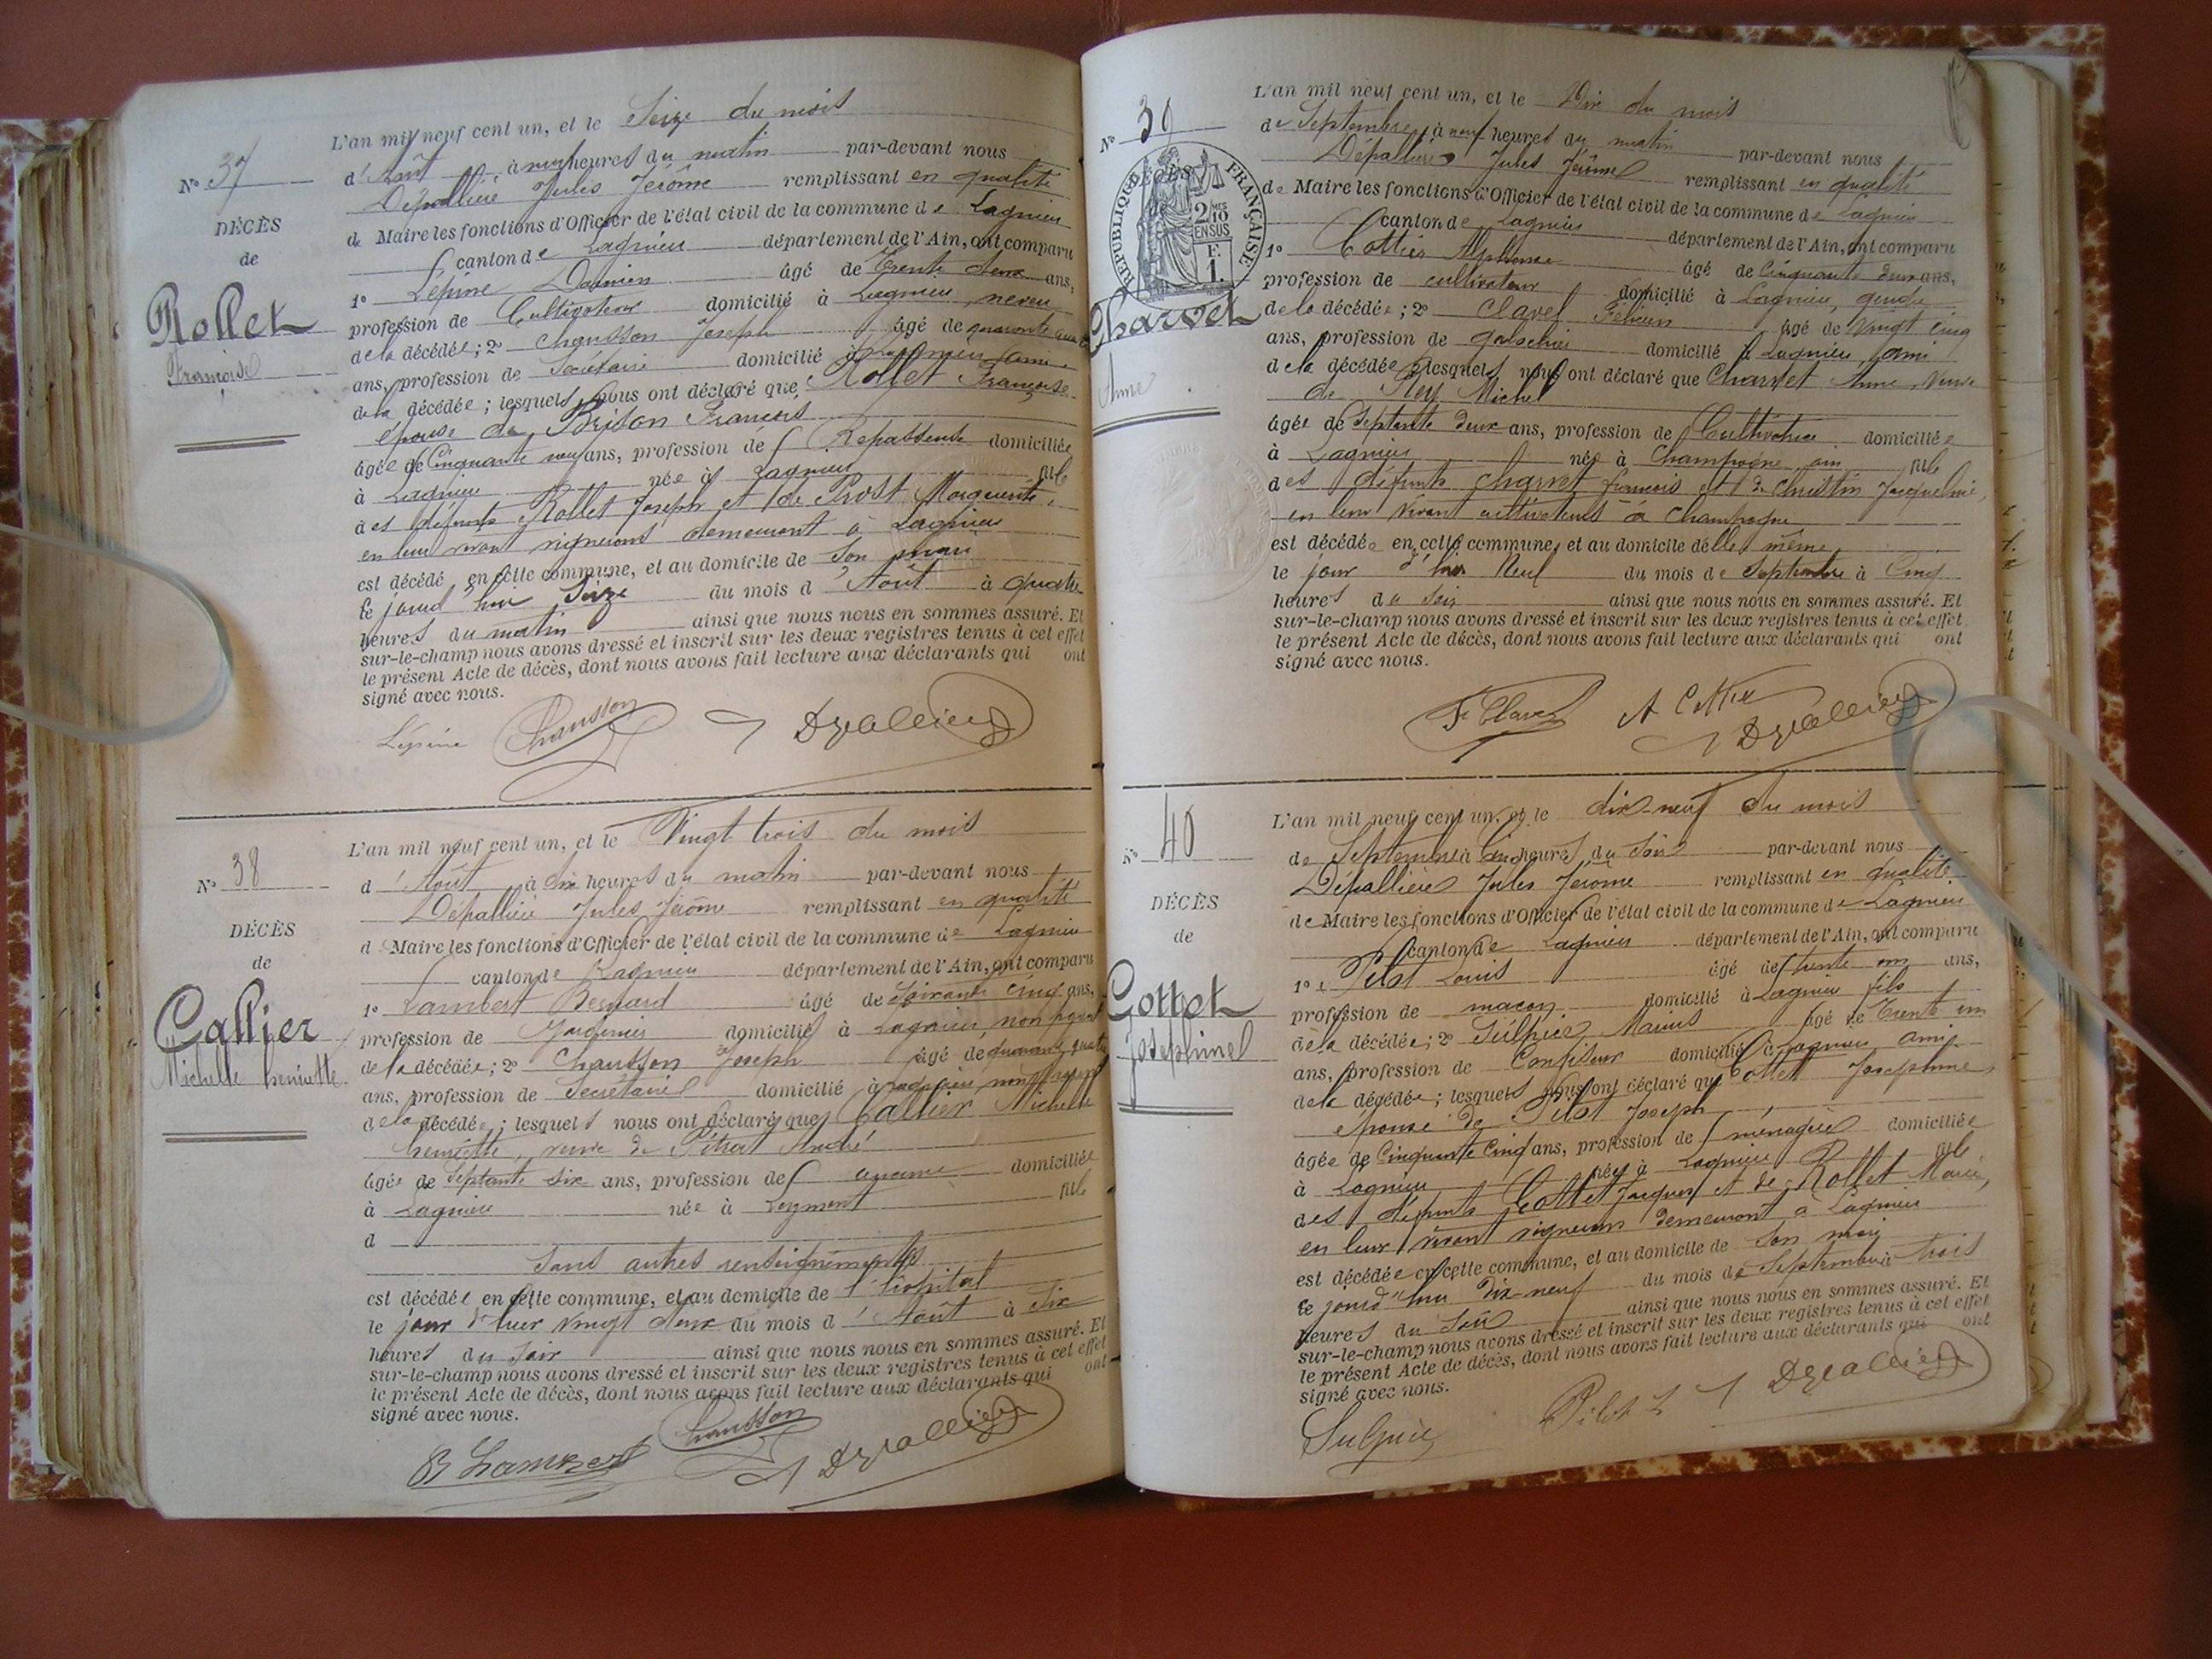 N° 37
DÉCÈS
de
Rollet
Françoise
L'an mil neuf cent un, et le Seize du mois
d'Août, à neuf heures du matin par-devant nous
Dépallière Jules Jérôme remplissant en qualité
de Maire les fonctions d'Officier de l'état civil de la commune de Lagnieu
canton de Lagnieu département de l'Ain, ont comparu
1° Lépine Damien âgé de Trente deux ans,
profession de Cultivateur domicilié à Lagnieu, neveu
de la décédée; 2° Chausson Joseph âgé de quarante quatre
ans, profession de Secrétaire domicilié à Lagnieu ami
de la décédée; lesquels nous ont déclaré que Rollet Françoise
épouse de Brison François
âgée de Cinquante neuf ans, profession de Repasseuse domiciliée
à Lagnieu née à Lagnieu fille
des défunts Rollet Joseph et de Prost Marguerite,
en leur vivant vignerons demeurant à Lagnieu
est décédé en cette commune, et au domicile de son mari
le jourd'hui Seize du mois d'Août à quatre
heures du matin ainsi que nous nous en sommes assuré. Et
sur-le-champ nous avons dressé et inscrit sur les deux registres tenus à cet effet
le présent Acte de décès, dont nous avons fait lecture aux déclarants qui ont
signé avec nous.
Lépine Chausson J Dépallière
N° 38
DÉCÈS
de
Callier
Michelle henriette.
L'an mil neuf cent un, et le Vingt trois du mois
d'Août à dix heures du matin par-devant nous
Dépallière Jules Jérôme remplissant en qualité
de Maire les fonctions d'Officier de l'état civil de la commune de Lagnieu
canton de Lagnieu département de l'Ain, ont comparu
1° Lambert Bernard âgé de Soixante cinq ans,
profession de Jardinier domicilié à Lagnieu non parent
de la décédée; 2° Chausson Joseph âgé de quarante quatre
ans, profession de Secrétaire domicilié à Lagnieu non parent
de la décédée; lesquels nous ont déclaré que Callier Michelle
henriette, veuve de André
âgée de Septante six ans, profession de aucune domiciliée
à Lagnieu née à Leyment fille
d
Sans autres renseignements
est décédée en cette commune, et au domicile de l'hôpital
le jour d'hier Vingt deux du mois d'Août à six
heures du soir ainsi que nous nous en sommes assuré. Et
sur-le-champ nous avons dressé et inscrit sur les deux registres tenus à cet effet
le présent Acte de décès, dont nous avons fait lecture aux déclarants qui ont
signé avec nous.
B Lambert Chausson J Dépallière
N° 39
DÉCÈS
de
RÉPUBLIQUE FRANÇAISE
2/10 EN SUS
F. 1.
Charvet
Anne
L'an mil neuf cent un, et le Dix du mois
de Septembre, à neuf heures du matin par-devant nous
Dépallière Jules Jérôme remplissant en qualité
de Maire les fonctions d'Officier de l'état civil de la commune de Lagnieu
canton de Lagnieu département de l'Ain, ont comparu
1° Cottier Alphonse âgé de Cinquante deux ans,
profession de cultivateur domicilié à Lagnieu, gendre
de la décédée; 2° Clavel âgé de Vingt cinq
ans, profession de domicilié à Lagnieu ami
de la décédée lesquels nous ont déclaré que Charvet Anne, Veuve
de Rey Michel
âgée de Septante deux ans, profession de Cultivatrice domiciliée
à Lagnieu née à Champagne ain fille
des défunts Charvet françois et de Christin Jacqueline,
en leur vivant cultivateurs à Champagne
est décédée en cette commune, et au domicile d'elle même
le jour d'hier Neuf du mois de Septembre à Cinq
heures du soir ainsi que nous nous en sommes assuré. Et
sur-le-champ nous avons dressé et inscrit sur les deux registres tenus à cet effet
le présent Acte de décès, dont nous avons fait lecture aux déclarants qui ont
signé avec nous.
F. Clavel A Cottier J Dépallière
N° 40
DÉCÈS
de
Cottet
Joséphine
L'an mil neuf cent un, et le dix-neuf du mois
de Septembre à Cinq heures du soir par-devant nous
Dépallière Jules Jérôme remplissant en qualité
de Maire les fonctions d'Officier de l'état civil de la commune de Lagnieu
canton de Lagnieu département de l'Ain, ont comparu
1° Pilot Louis âgé de trente un ans,
profession de maçon domicilié à Lagnieu fils
de la décédée; 2° Sulpice Marius âgé de Trente un
ans, profession de Confiseur domicilié à Lagnieu ami
de la décédée; lesquels nous ont déclaré que Cottet Josephine,
épouse de Pilot Joseph
âgée de Cinquante Cinq ans, profession de ménagère domiciliée
à Lagnieu née à Lagnieu fille
des défunts Cottet Jacques et de Rollet Marie,
en leur vivant vignerons demeurant à Lagnieu
est décédée en cette commune, et au domicile de son mari
le jourd'hui Dix-neuf du mois de Septembre à trois
heures du soir ainsi que nous nous en sommes assuré. Et
sur-le-champ nous avons dressé et inscrit sur les deux registres tenus à cet effet
le présent Acte de décès, dont nous avons fait lecture aux déclarants qui ont
signé avec nous.
Sulpice Pilot L J Dépallière